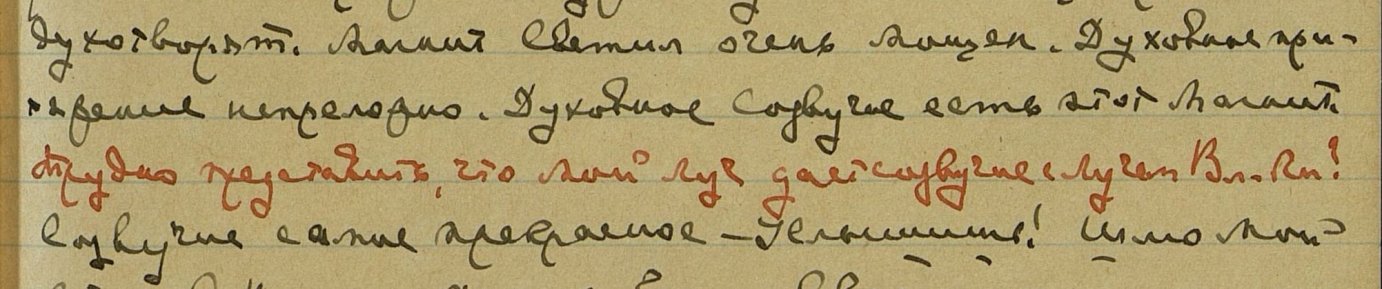 духотворят. Магнит Светил очень мощен. Духовное при-
тяжение непреложно. Духовное созвучие есть этот Магнит.
Трудно представить, что мой луч дает созвучие с Лучем Вл. Вл.?
Созвучие самое прекрасное – Услышишь!